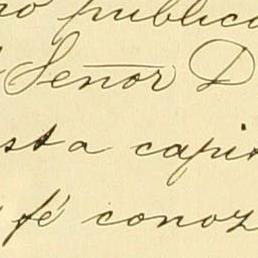 no publico
Señor D
sta capit
fé conoz